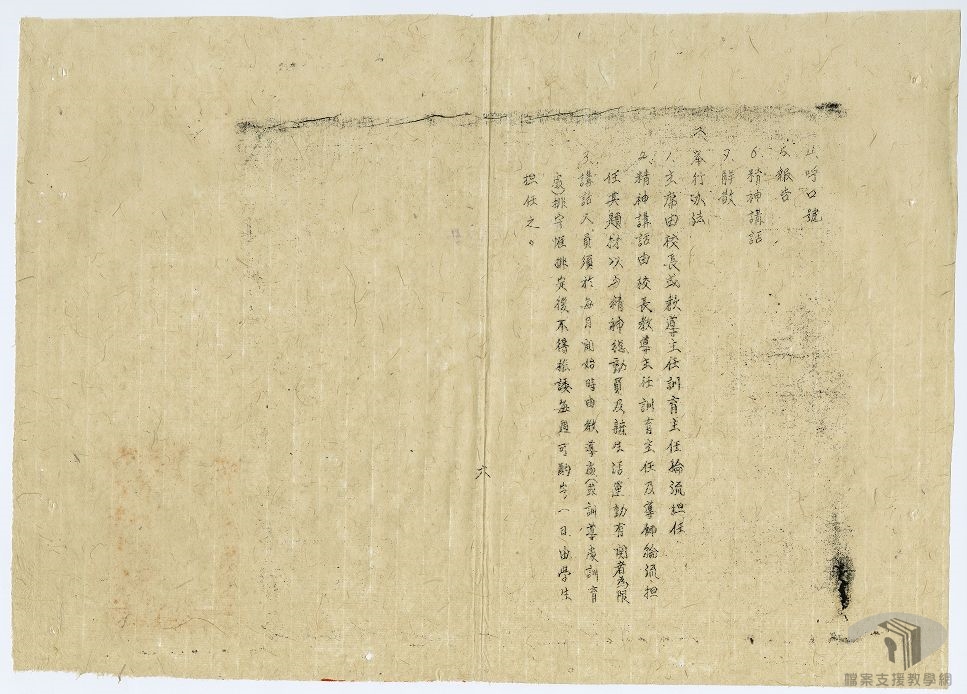 4.呼口號
5.報告
6.精神講話
7.解散
八、举行办法
1.主席由校長或教導主任訓育主任輪流担任
2.精神講話由校長教導主任訓育主任及導師輪流担
任其題材以与精神總動員及新生活運動有関者為限
3.講話人員須於每月開始時由教導處(或訓導處訓育
處)排定後不得推諉每週可酌定一日由學生
担任之。
六
檔案支援教學網